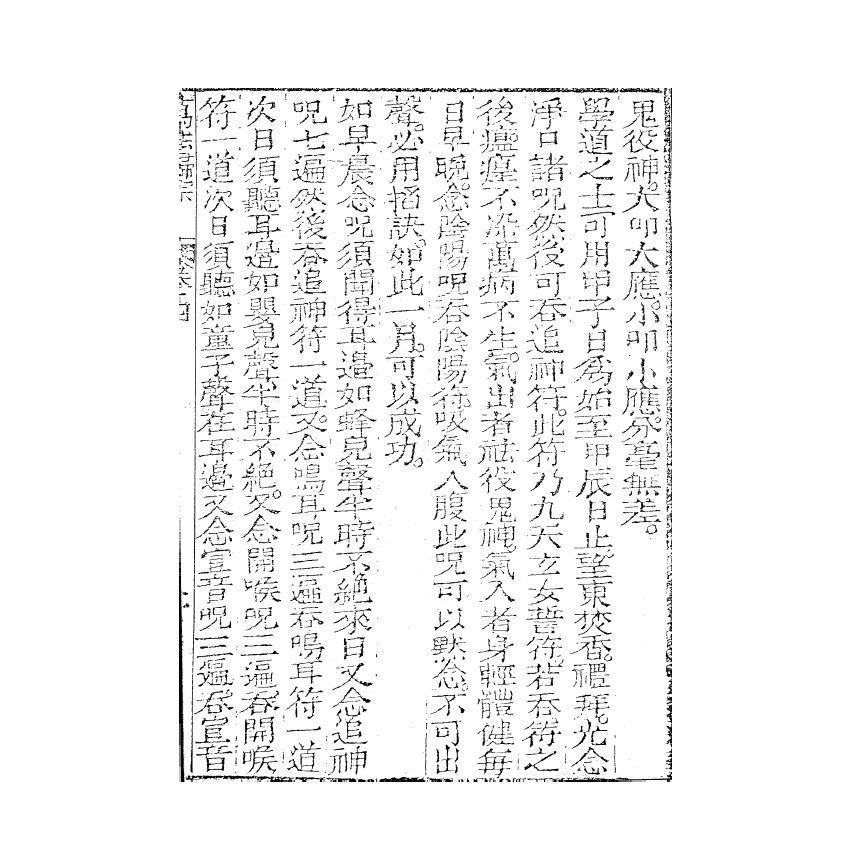 鬼役神。大叩大應。小叩小應。分毫無差。
學道之士可用甲子日為始至甲辰日止。望東焚香。禮拜。先念
淨口諸呪然後可吞追神符。此符乃九天玄女誓符。若吞符之
後瘟瘽不染萬病不生。氣出者祛役鬼神。氣入者身輕體健每
日早晚。念陰陽呪吞陰陽符。吸氣入腹此呪可以默念。不可出
聲。必用掐訣。如此一月。可以成功。
如早晨念呪須聞得耳邉如蜂皃聲半時不絕來日又念追神
呪七遍然後吞追神符一道。又念鳴耳呪三遍吞鳴耳符一道
次日須聽耳邉如嬰兒聲半時不絕。又念開喉呪三遍。吞開喉
符一道次日須聽如童子聲在耳邉又念宣音呪三遍。吞宣音
萬法歸宗 卷之四